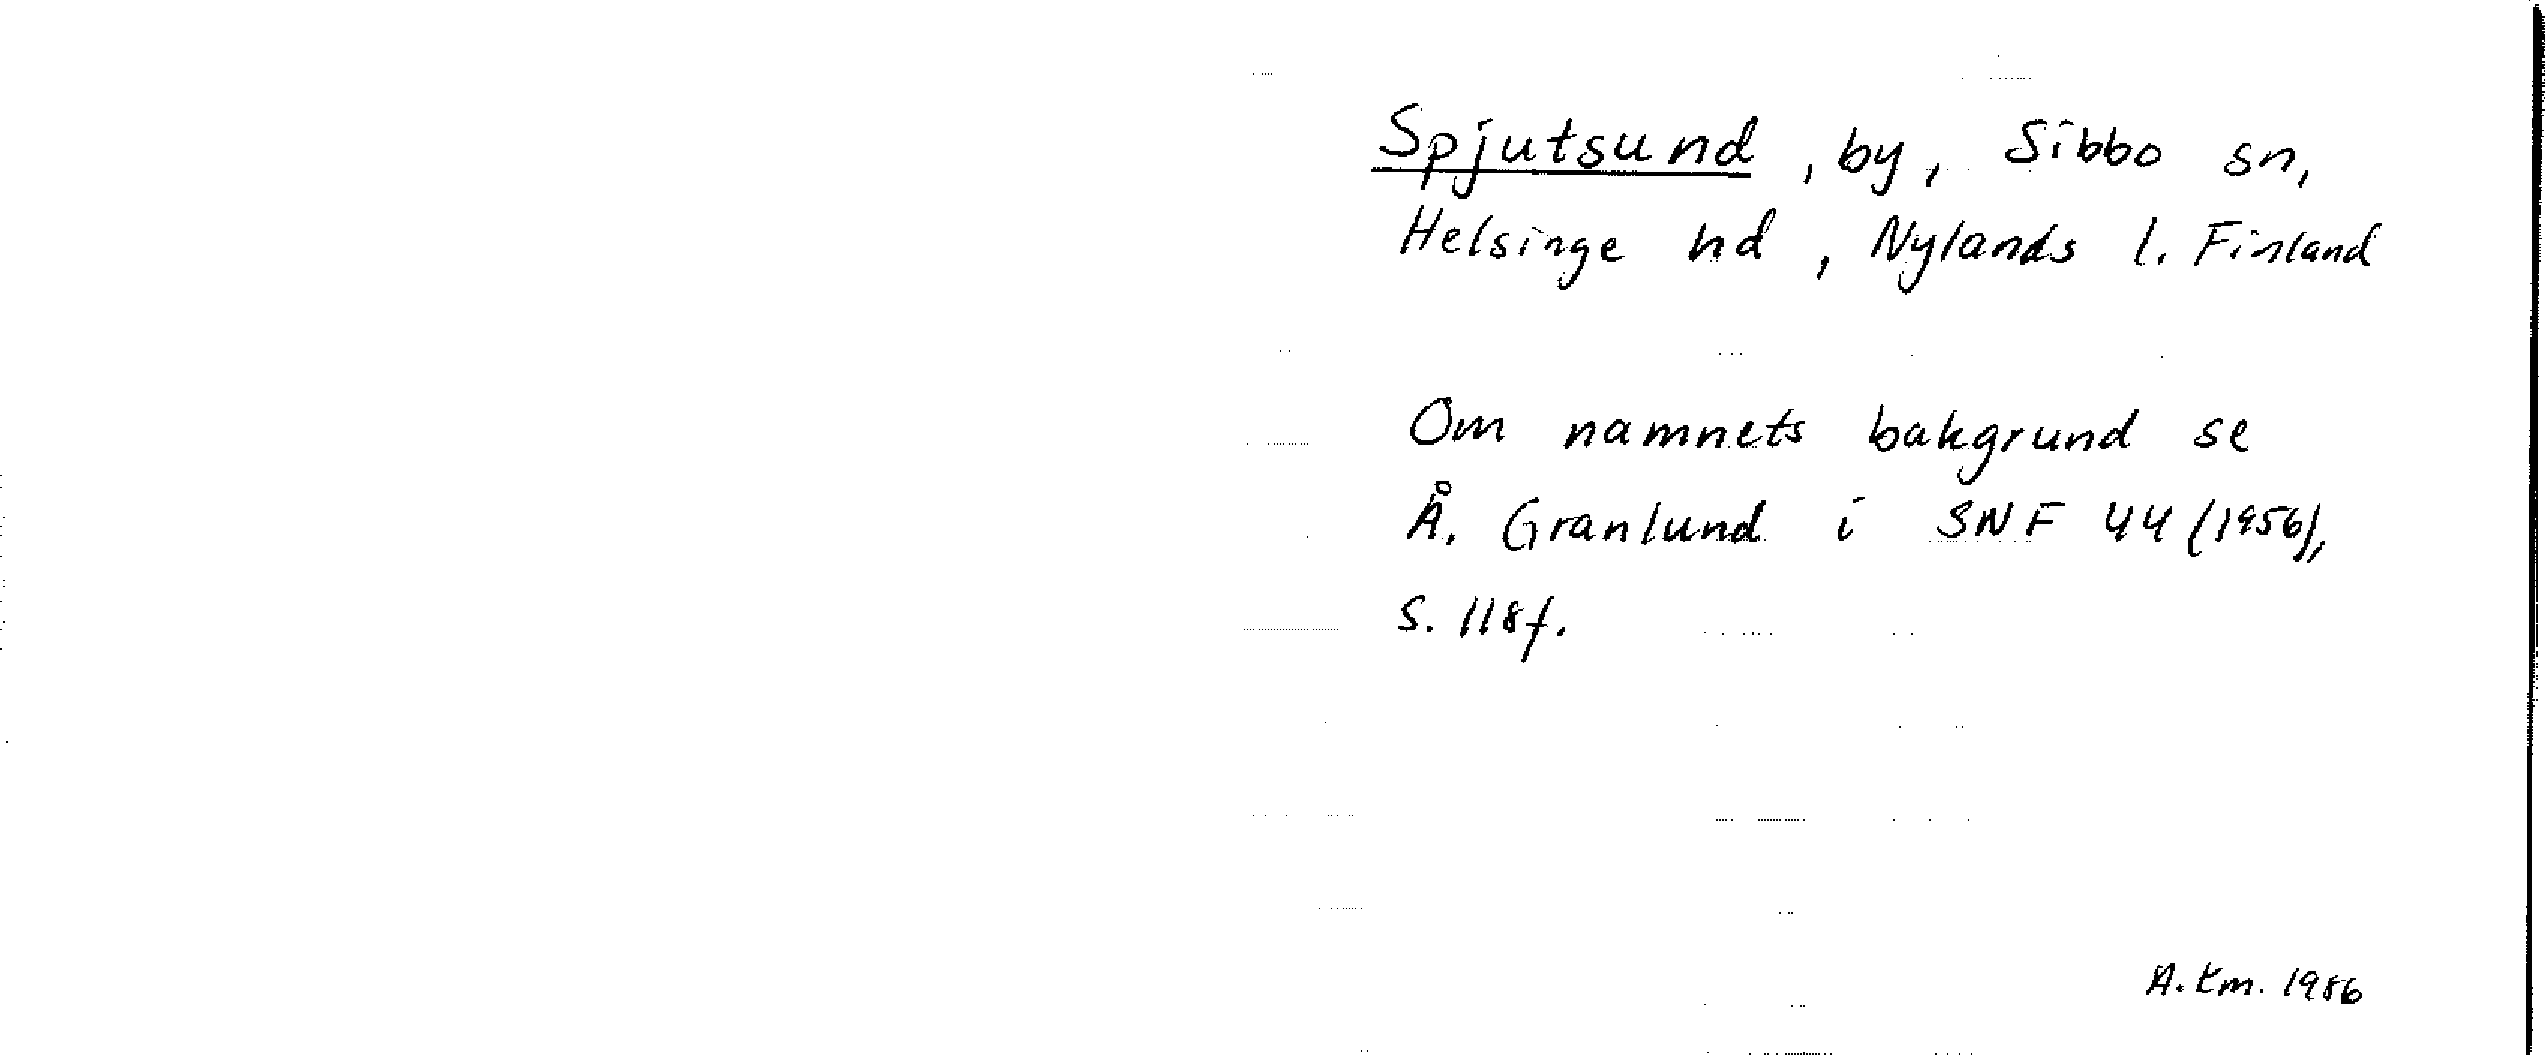 Spjutsund, by, Sibbo sn,
Helsinge hd, Nylands l. Finland
Om namnets bakgrund se
Å. Granlund i SNF 44 (1956),
s. 118f.
A. Em. 1986